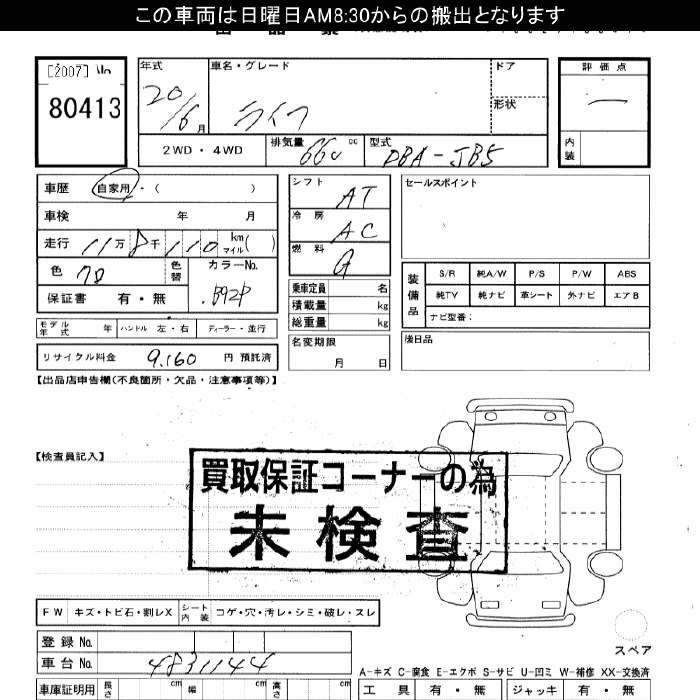 この車両は日曜日AM8:30からの搬出となります
[2007] No
80413
年式
20/6月
車名・グレード
ライフ
ドア
形状
評価点
—
内装
2WD・4WD
排気量 660 cc
型式 DBA-JB5
車歴 自家用・( )
車検 年 月
走行 11万8千110 km マイル( )
色 クロ
色替
カラーNo.
B92P
保証書 有・無
シフト AT
冷房 AC
燃料 G
乗車定員 名
積載量 kg
総重量 kg
セールスポイント
装備品
S/R 純A/W P/S P/W ABS
純TV 純ナビ 革シート 外ナビ エアB
ナビ型番:
モデル年式 年 ハンドル 左・右 ディーラー・並行
名変期限
月 日
後日品
リサイクル料金 9,160 円 預託済
【出品店申告欄(不良箇所・欠品・注意事項等)】
【検査員記入】
買取保証コーナーの為
未検査
FW キズ・トビ石・割レX シート内装 コゲ・穴・汚レ・シミ・破レ・スレ
登録No.
車台No. 4831144
スペア
A-キズ C-腐食 E-エクボ S-サビ U-凹ミ W-補修 XX-交換済
車庫証明用 長さ cm 幅 cm 高さ cm
工具 有・無 ジャッキ 有・無